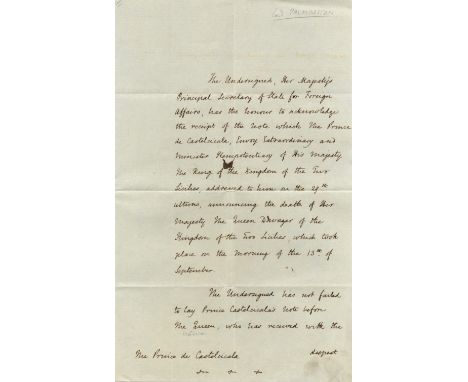 PALMERSTON
The Undersigned, Her Majesty's
Principal Secretary of State for Foreign
Affairs, has the honour to acknowledge
the receipt of the Note which The Prince
de Castelcicala, Envoy Extraordinary and
Minister Plenipotentiary of His Majesty
The King of the Kingdom of the Two
Sicilies, addressed to him on the 29th
ultimo, announcing the death of Her
Majesty The Queen Dowager of the
Kingdom of the Two Sicilies, which took
place on the morning of the 13th of
September.
The Undersigned has not failed
to lay Prince Castelcicala's Note before
The Queen, who has received with the
deepest
The Prince de Castelcicala